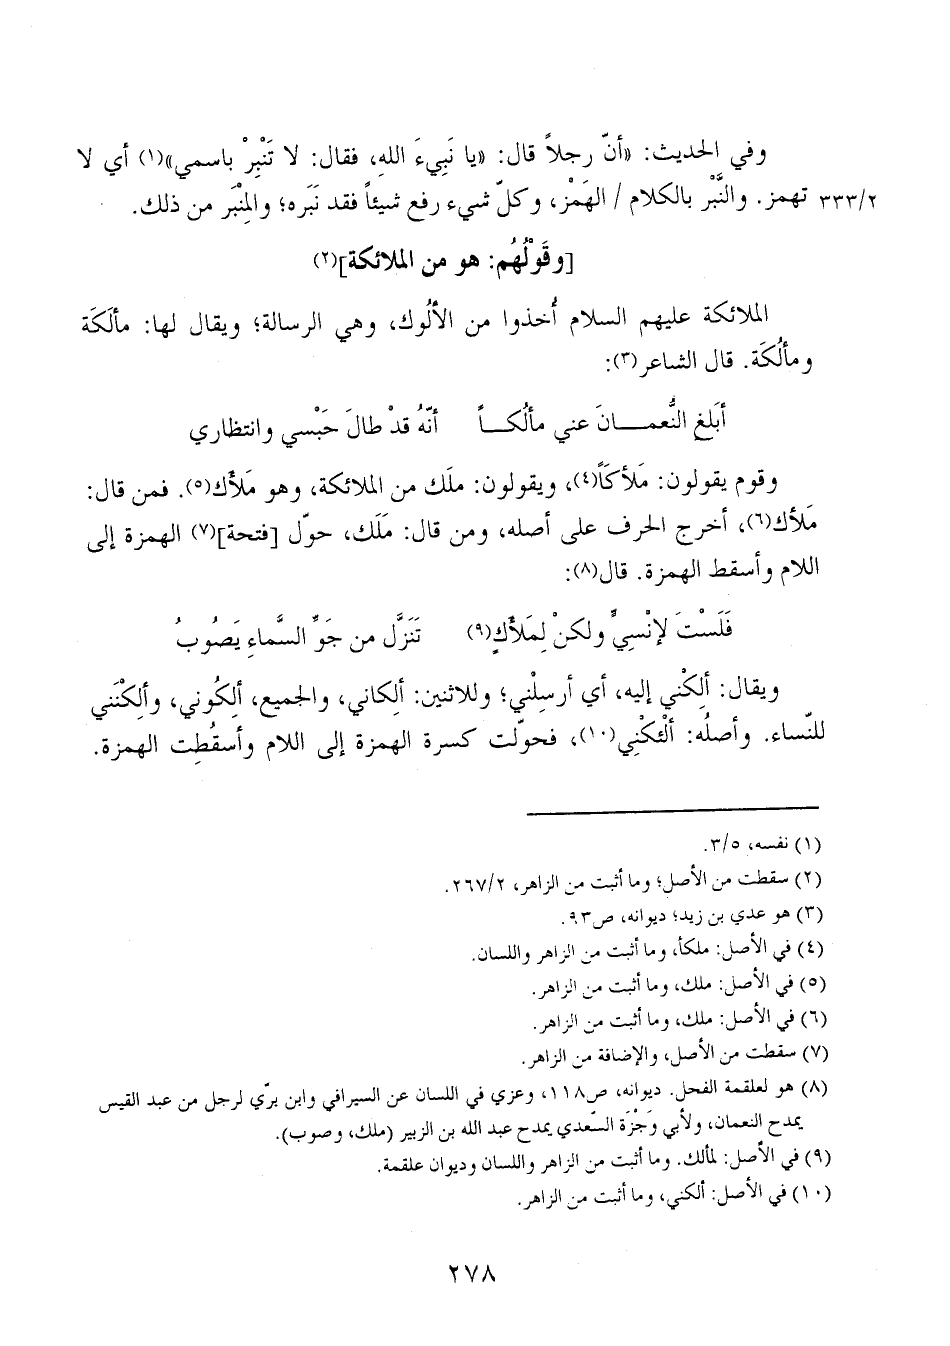 وفي الحديث: «أنّ رجلاً قال: «يا نَبِيءَ اللهِ، فقال: لا تَنْبِرْ باسمي»(١) أي لا
٣٣٣/٢ تهمز. والنَّبْر بالكلام / الهَمْز، وكلّ شيء رفع شيئاً فقد نَبَره؛ والمِنْبَر من ذلك.
[وقَوْلُهُم: هو من الملائكة](٢)
الملائكة عليهم السلام أُخذوا من الألُوك، وهي الرسالة؛ ويقال لها: مألَكَة
ومألُكَة. قال الشاعر(٣):
أبَلغِ النُّعمـــانَ عني مألُكـــاً أنّهُ قدْ طالَ حَبْسي وانتظاري
وقوم يقولون: مَلأكَاً(٤)، ويقولون: ملَك من الملائكة، وهو مَلأَك(٥). فمن قال:
مَلأك(٦)، أخرج الحرف على أصله، ومن قال: مَلَك، حوّل [فتحة](٧) الهمزة إلى
اللام وأسقط الهمزة. قال(٨):
فَلَسْتَ لإنْسِيٍّ ولكنْ لِمَلأَكٍ(٩) تَنَزَّل من جَوِّ السَّماءِ يَصُوبُ
ويقال: ألِكْني إليه، أي أرسِلْني؛ وللاثنين: ألِكاني، والجميع، ألِكُوني، وألِكْنَني
للنّساء. وأصلُه: ألْئكْنِي(١٠)، فحوّلت كسرة الهمزة إلى اللام وأسقُطِت الهمزة.
(١) نفسه، ٣/٥.
(٢) سقطت من الأصل؛ وما أثبت من الزاهر، ٢٦٧/٢.
(٣) هو عدي بن زيد؛ ديوانه، ص٩٣.
(٤) في الأصل: ملكأ، وما أثبت من الزاهر واللسان.
(٥) في الأصل: ملك، وما أثبت من الزاهر.
(٦) في الأصل: ملك، وما أثبت من الزاهر.
(٧) سقطت من الأصل، والإضافة من الزاهر.
(٨) هو لعلقمة الفحل. ديوانه، ص١١٨، وعزي في اللسان عن السيرافي وابن برّي لرجل من عبد القيس
يمدح النعمان، ولأبي وَجْزَة السّعدي يمدح عبد الله بن الزبير (ملك، وصوب).
(٩) في الأصل: لمألك. وما أثبت من الزاهر واللسان وديوان علقمة.
(١٠) في الأصل: ألكني، وما أثبت من الزاهر.
٢٧٨